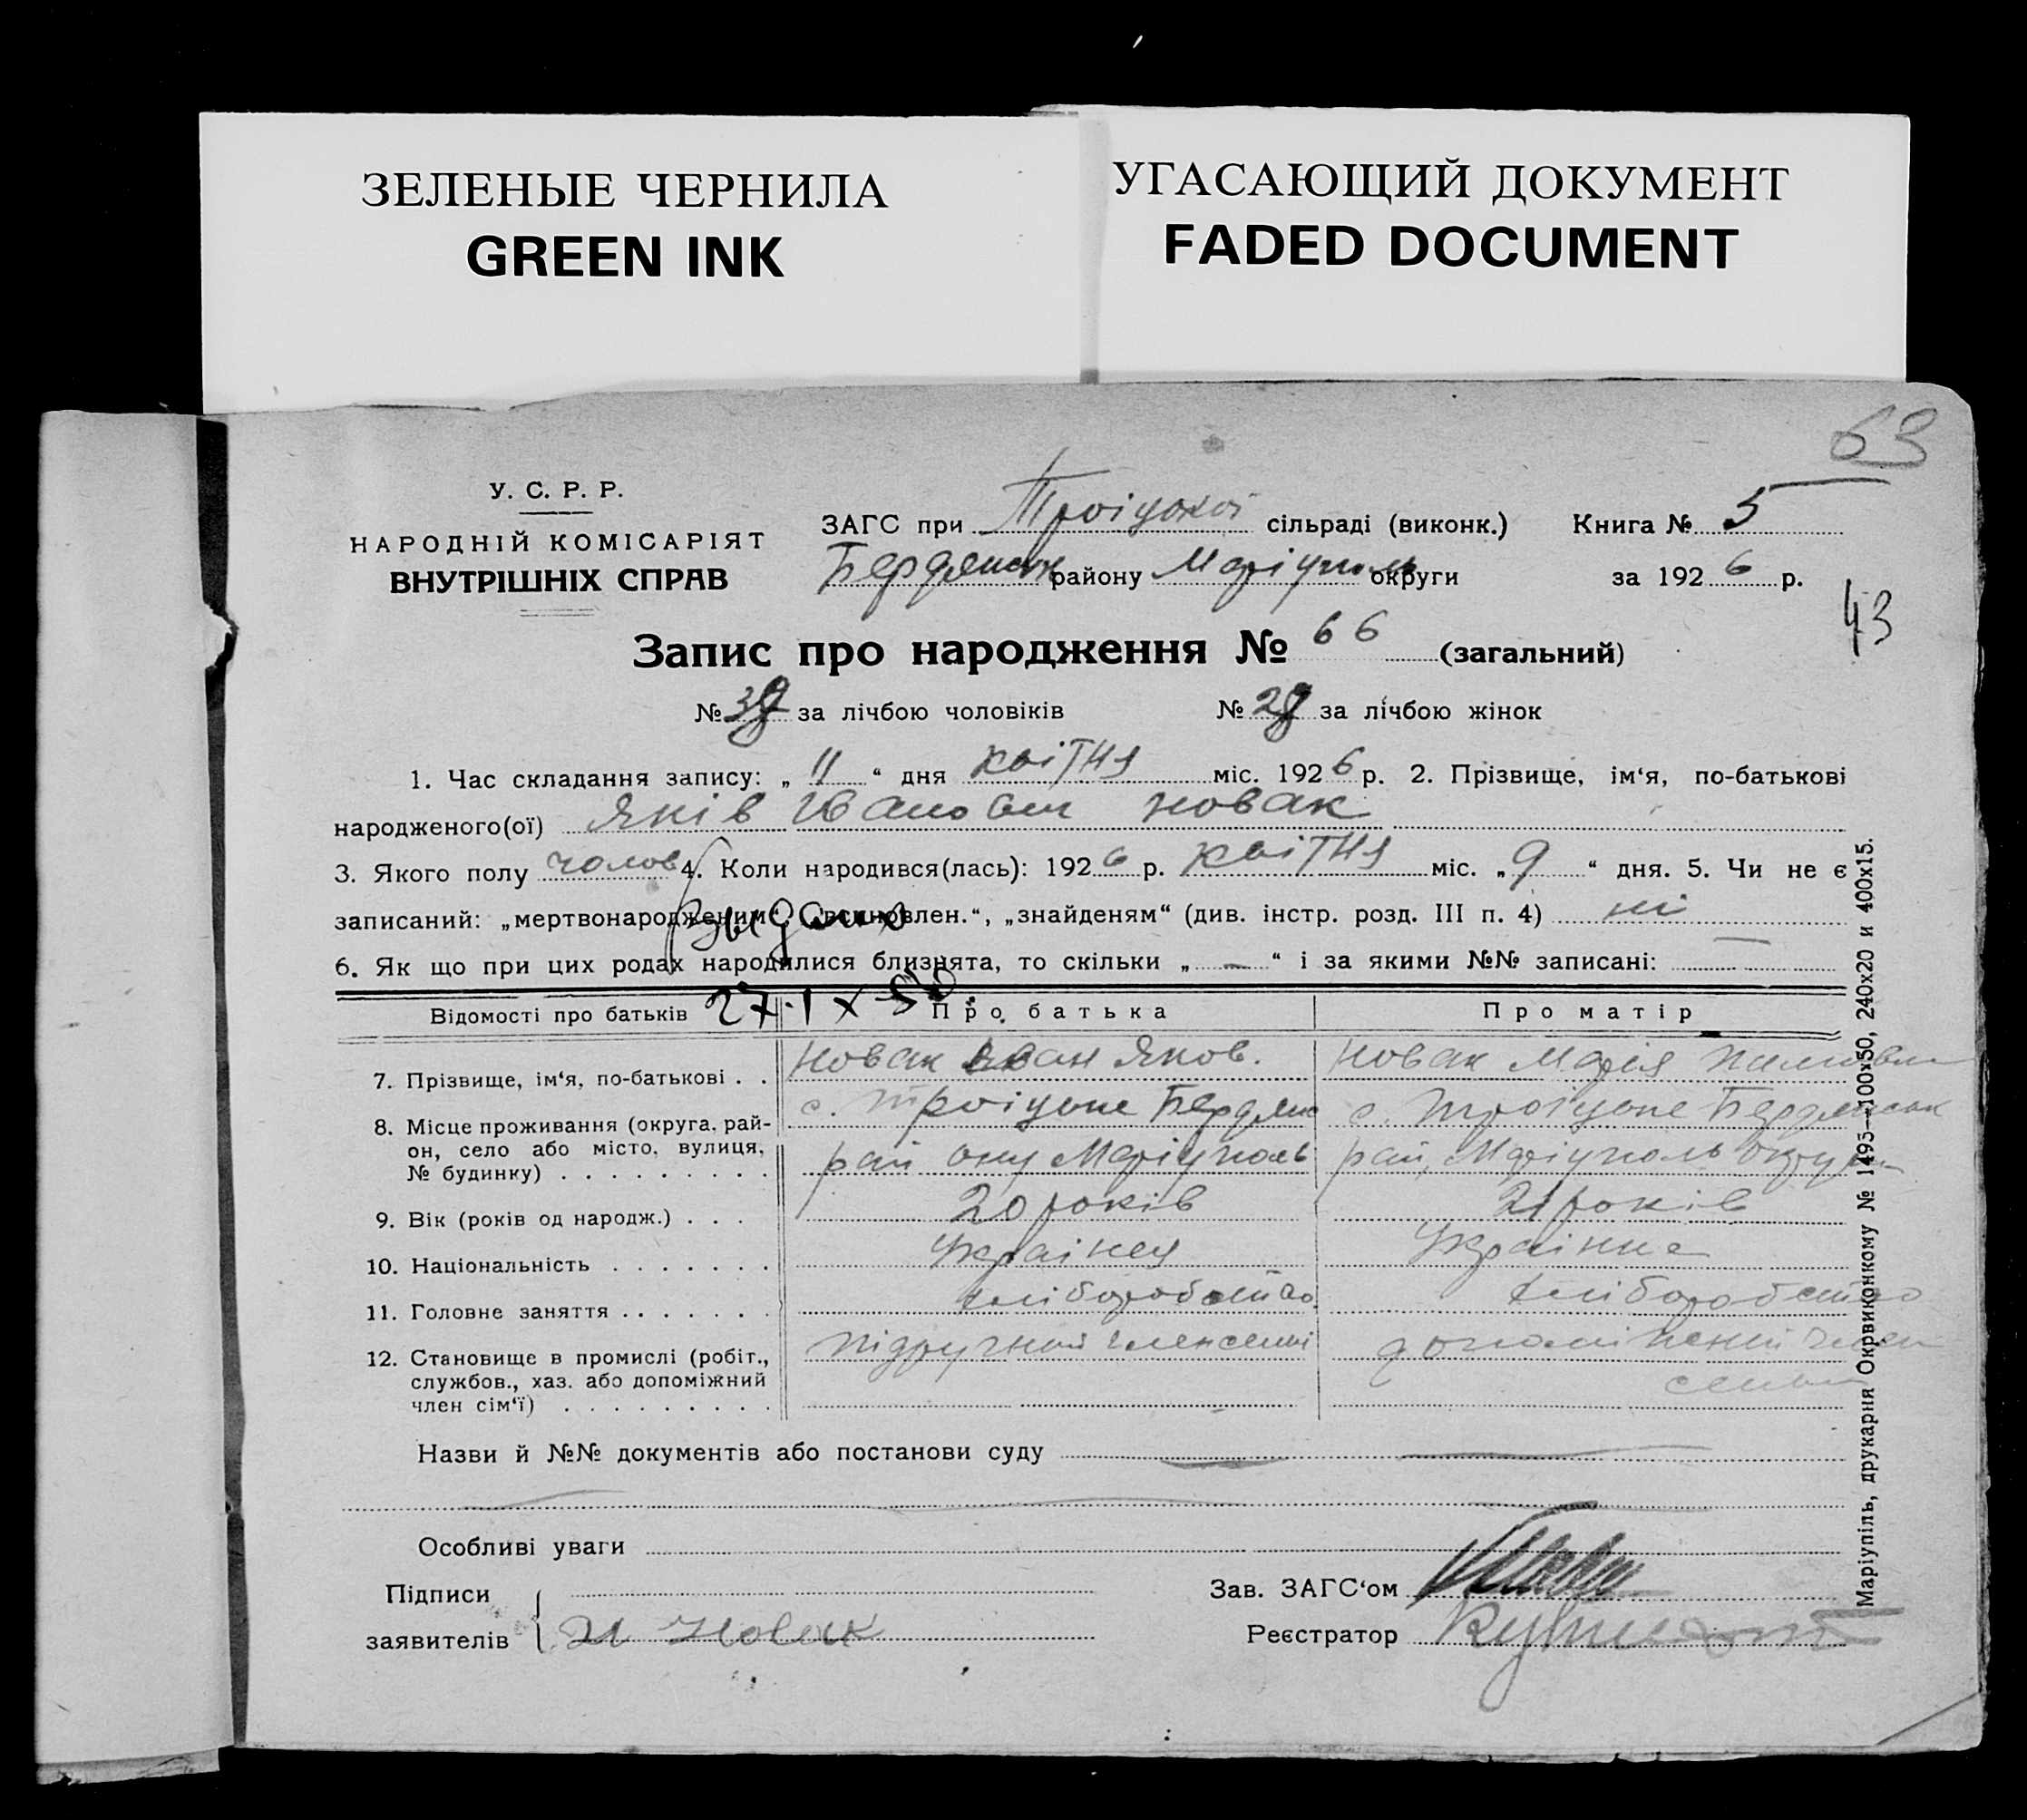 ЗЕЛЕНЫЕ ЧЕРНИЛА
GREEN INK
УГАСАЮЩИЙ ДОКУМЕНТ
FADED DOCUMENT
63
У. С. Р. Р.
НАРОДНІЙ КОМІСАРІЯТ
ВНУТРІШНІХ СПРАВ
ЗАГС при Троіцкої сільраді (виконк.) Книга № 5
Бердянськ району Маріуполь округи за 1926 р.
43
Запис про народження № 66 (загальний)
№ 39 за лічбою чоловіків № 29 за лічбою жінок
1. Час складання запису: „ 11 “ дня квітня міс. 1926 р. 2. Прізвище, ім‘я, по-батькові
народженого(ої) Яків Іванович Новак
3. Якого полу чолов 4. Коли народився(лась): 1926 р. квітня міс. „ 9 “ дня. 5. Чи не є
записаний: „мертвонародженим“, „всиновлен.“, „знайденям“ (див. інстр. розд. III п. 4) ні
6. Як що при цих родах народилися близнята, то скільки „ — “ і за якими №№ записані: —
27.IX 50
Відомості про батьків Про батька Про матір
7. Прізвище, ім‘я, по-батькові . . Новак Іван Яков. Новак Марія
8. Місце проживання (округа, рай-
он, село або місто, вулиця,
№ будинку) . . . . . . . . .
с. Троіцьке Бердянс
рай ону Маріуполь
с. Троіцьке Бердянськ
рай, Маріуполь округи
9. Вік (років од народж.) . . . 20 років 21 років
10. Національність . . . . . . . Украінец Украінка
11. Головне заняття . . . . . . . хліборобство хліборобство
12. Становище в промислі (робіт.,
службов., хаз. або допоміжний
член сім‘ї) . . . . . . . . .
підручний член семї
член
семьи
Назви й №№ документів або постанови суду —
Особливі уваги
Підписи
заявителів И Новак
Зав. ЗАГС‘ом
Реєстратор
Маріупіль, друкарня Окрвиконкому № 1495—100х50, 240х20 и 400х15.